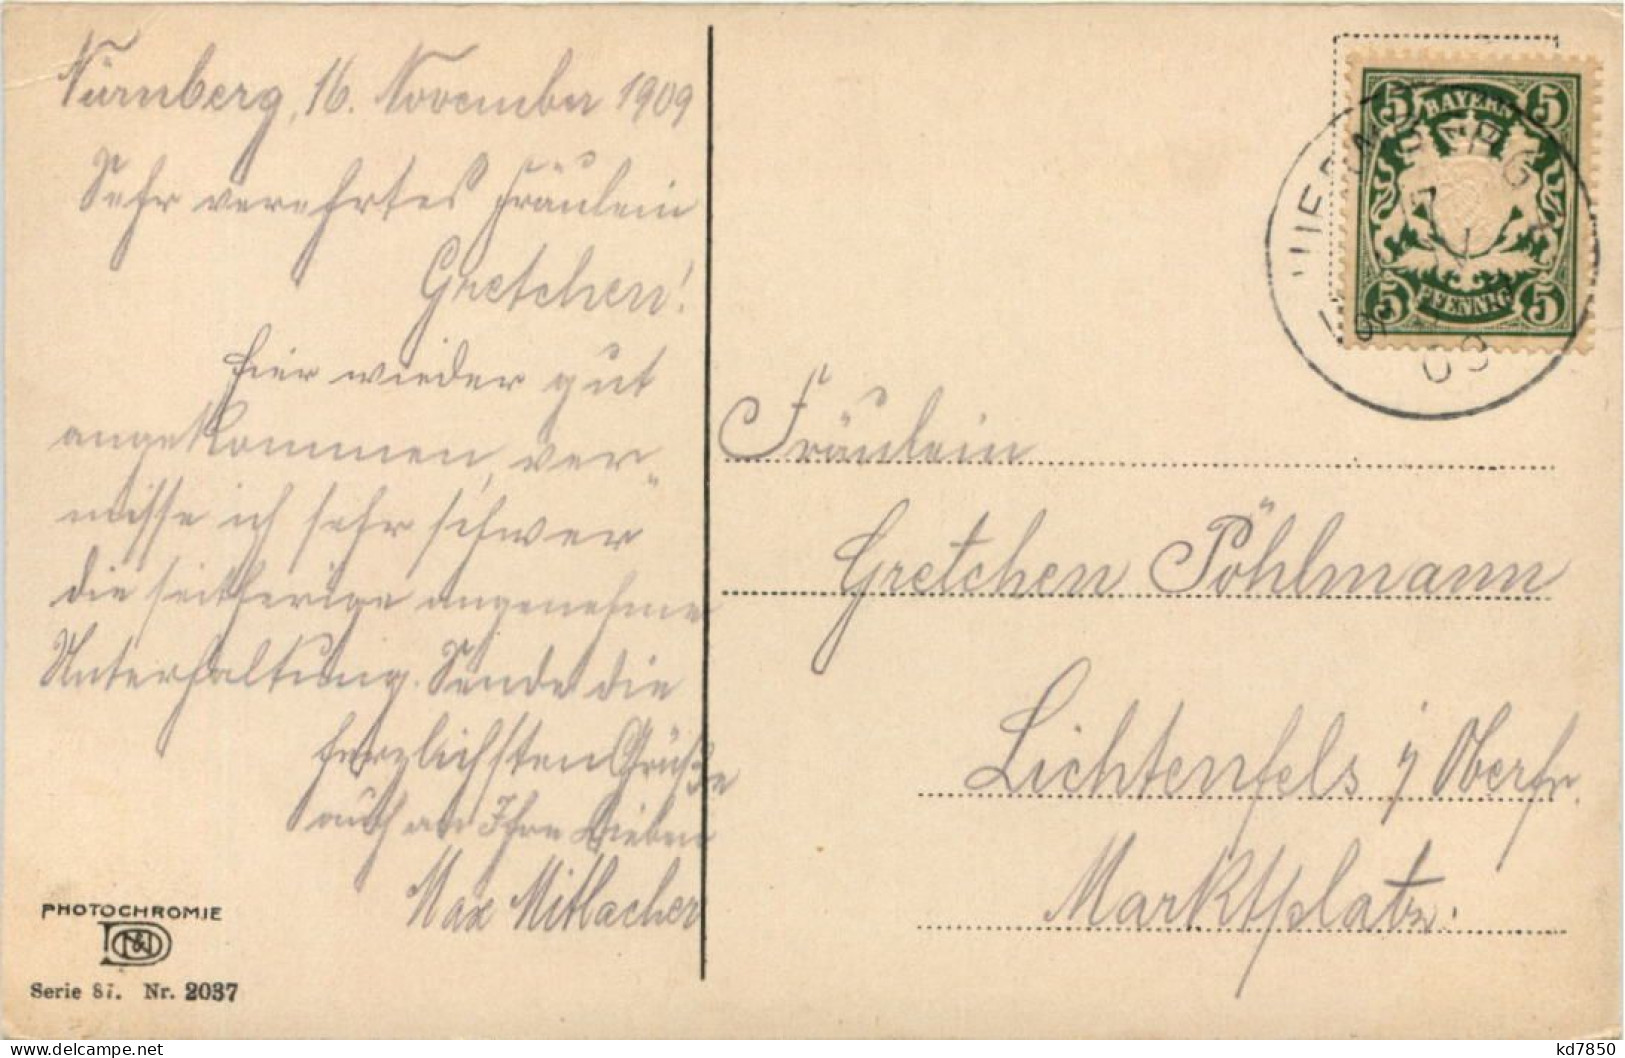 Nürnberg, 16. November 1909
Sehr verehrtes Fräulein
Gretchen!
Hier wieder gut
angekommen, ver-
misse ich sehr schwer
die seitherige angenehme
Unterhaltung. Sende die
herzlichsten Grüße
auch an Ihre Lieben
Max Mitlacher
PHOTOCHROMIE
Serie 87. Nr. 2037
5 BAYERN 5
5 PFENNIG 5
09
Fräulein
Gretchen Pöhlmann
Lichtenfels i/Oberfr.
Marktplatz.
kd7850